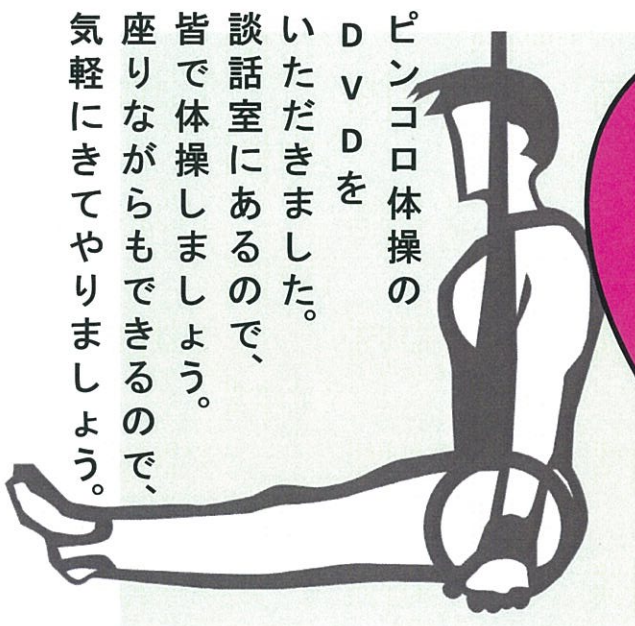 ピンコロ体操の
DVDを
いただきました。
談話室にあるので、
皆で体操しましょう。
座りながらもできるので、
気軽にきてやりましょう。